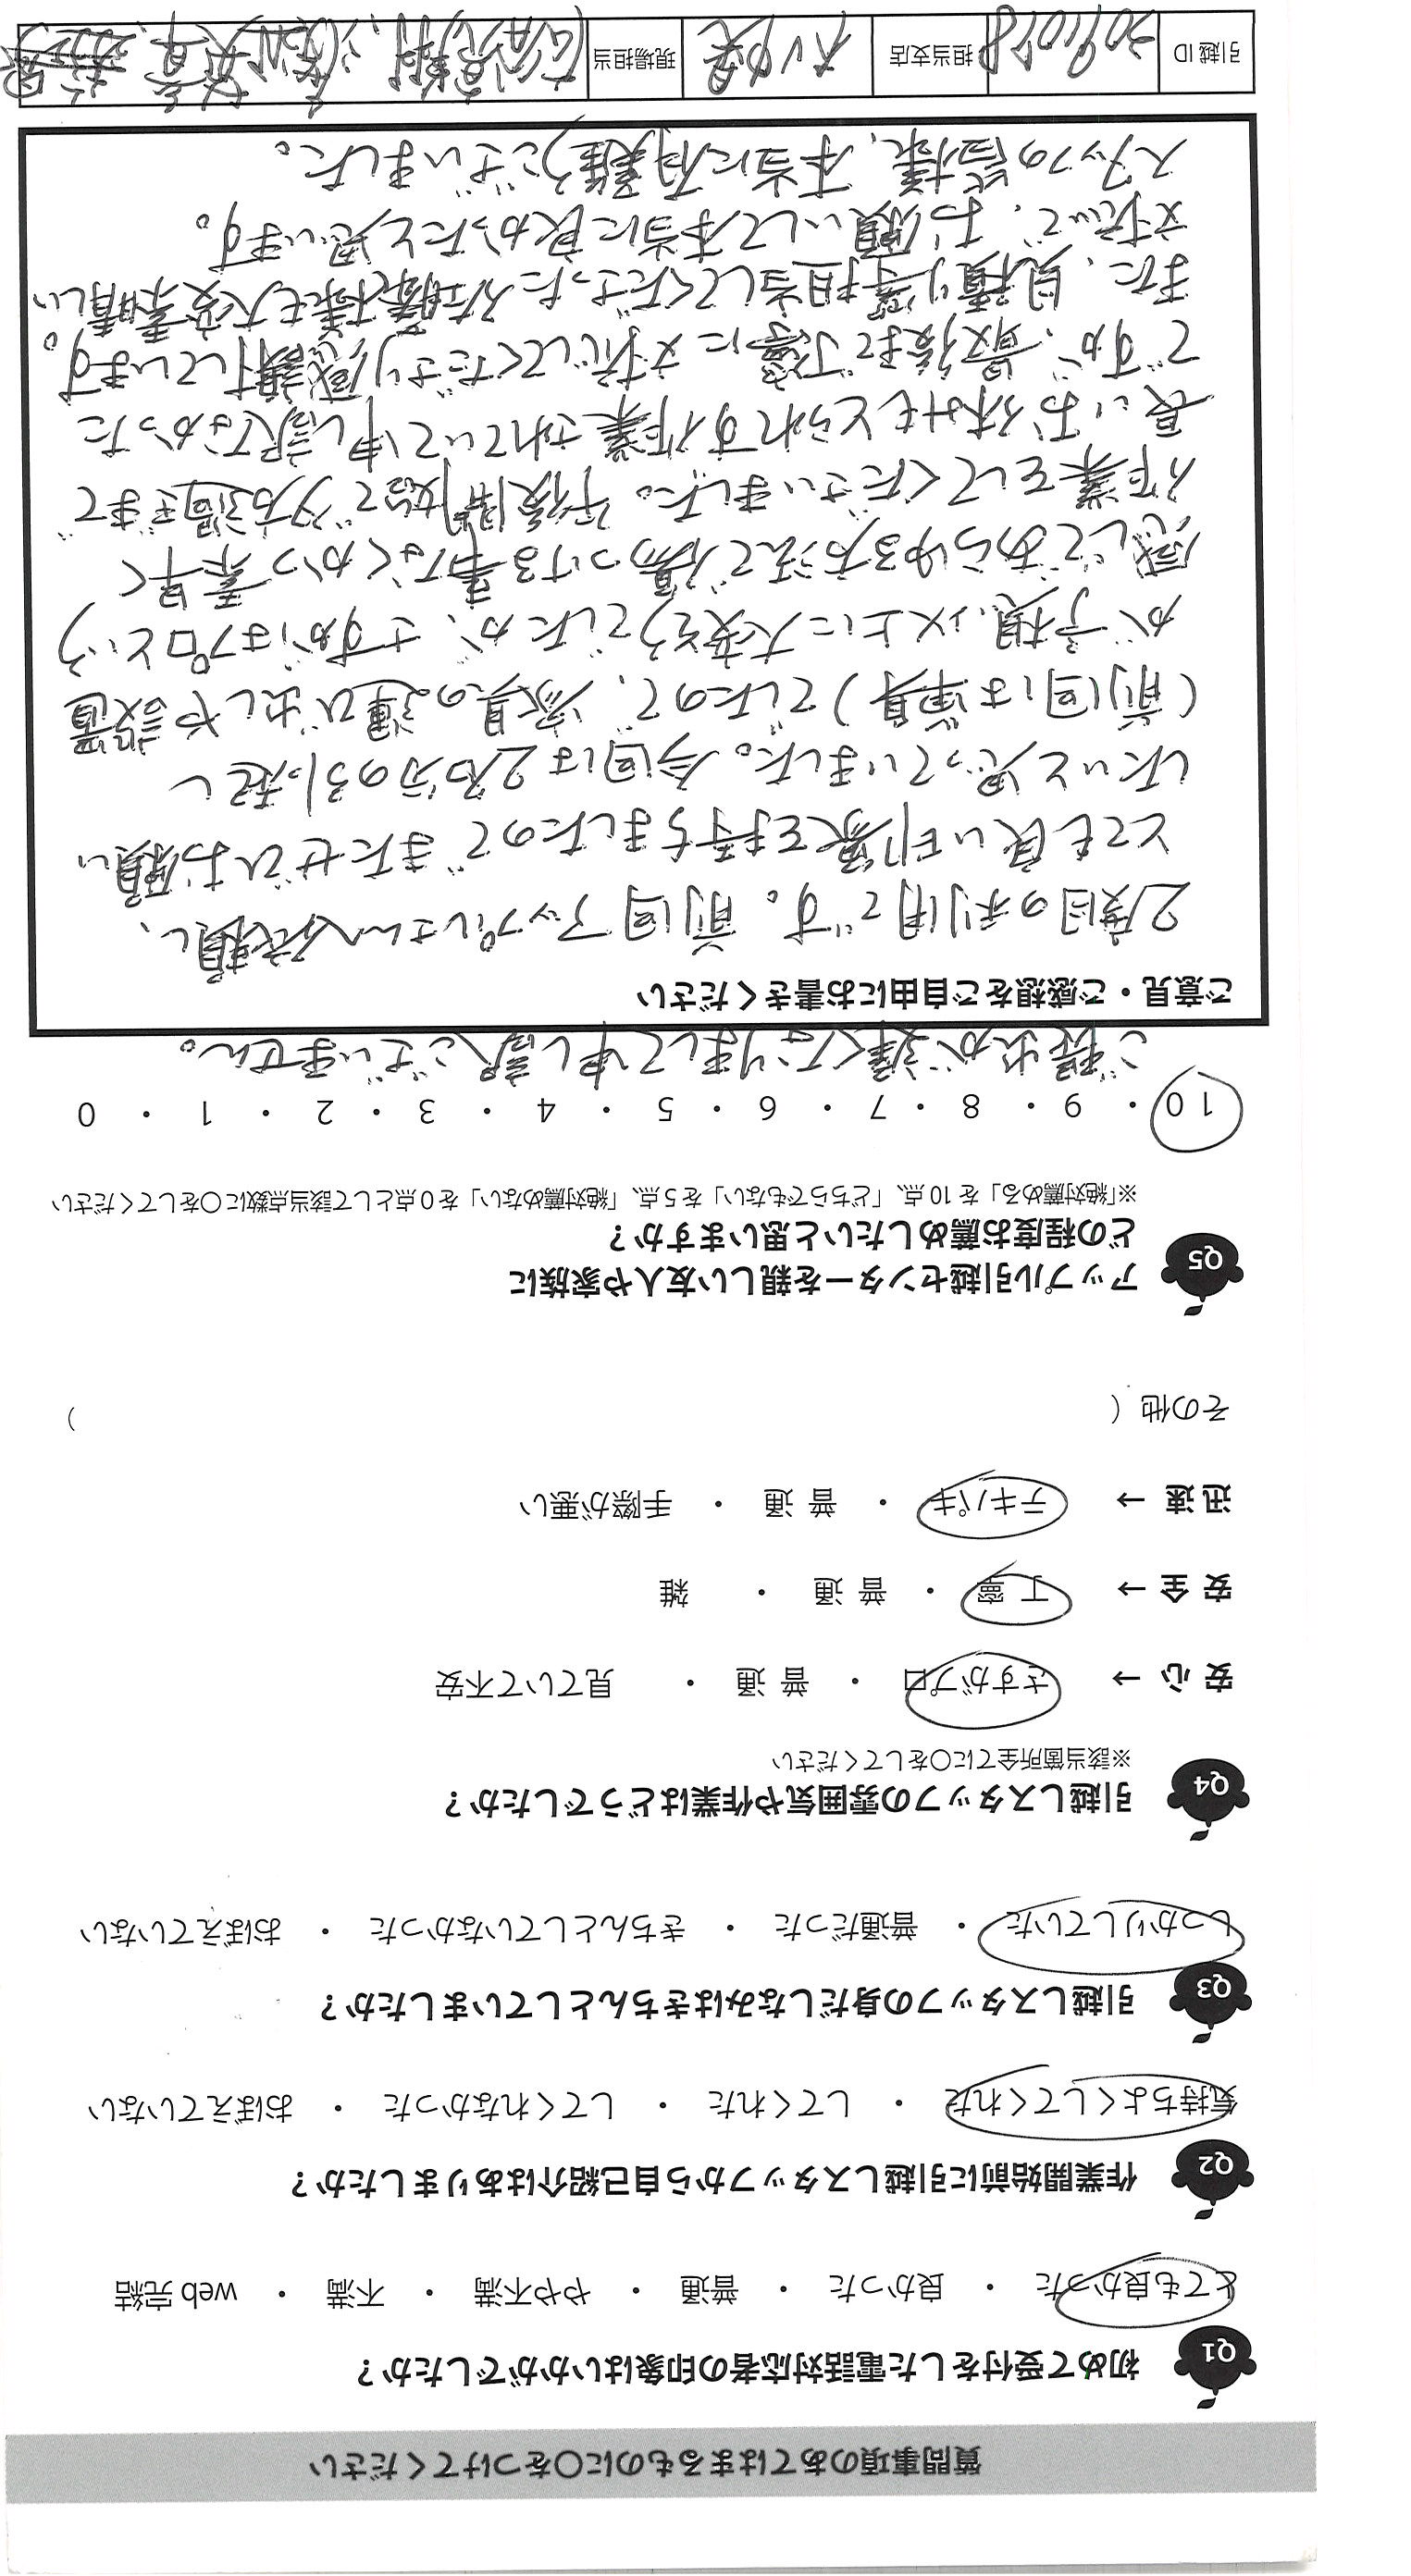 質問事項のあてはまるものに〇をつけてください
Q1 初めて受付をした電話対応者の印象はいかがでしたか？
とても良かった ・ 良かった ・ 普通 ・ やや不満 ・ 不満 ・ web 完結
Q2 作業開始前に引越しスタッフから自己紹介はありましたか？
気持ちよくしてくれた ・ してくれた ・ してくれなかった ・ おぼえていない
Q3 引越しスタッフの身だしなみはきちんとしていましたか？
しっかりしていた ・ 普通だった ・ きちんとしていなかった ・ おぼえていない
Q4 引越しスタッフの雰囲気や作業はどうでしたか？
※該当箇所全てに〇をしてください
安 心 → さすがプロ ・ 普 通 ・ 見ていて不安
安 全 → 丁 寧 ・ 普 通 ・ 雑
迅 速 → テキパキ ・ 普 通 ・ 手際が悪い
その他（ ）
Q5 アップル引越センターを親しい友人や家族に
どの程度お薦めしたいと思いますか？
※「絶対薦める」を 10 点、「どちらでもない」を 5 点、「絶対薦めない」を 0 点として該当点数に〇をしてください
10 ・ 9 ・ 8 ・ 7 ・ 6 ・ 5 ・ 4 ・ 3 ・ 2 ・ 1 ・ 0
ご提出が遅くなりまして申し訳ございません。
ご意見・ご感想をご自由にお書きください
2度目の利用です。前回アップルさんへ依頼し、
とても良い印象を持ちましたのでまたぜひお願い
したいと思っていました。今回は2名分の引っ越し
（前回は単身）でしたので、家具の運び出しや設置
が予想以上に大変そうでしたが、さすがはプロという
感じであらゆる方法で傷つける事なくかつ素早く
作業をしてくださいました。午後開始で夕方過ぎまで
長いお休みもとられず作業されていて申し訳なかった
ですが、最後まで丁寧に対応してくださり感謝しています。
また、見積り等担当してくださった佐藤様も大変素晴しい
対応で、お願いして本当に良かったと思います。
スタッフの皆様、本当に有難うございました。
引越 ID 担当支店 現場担当